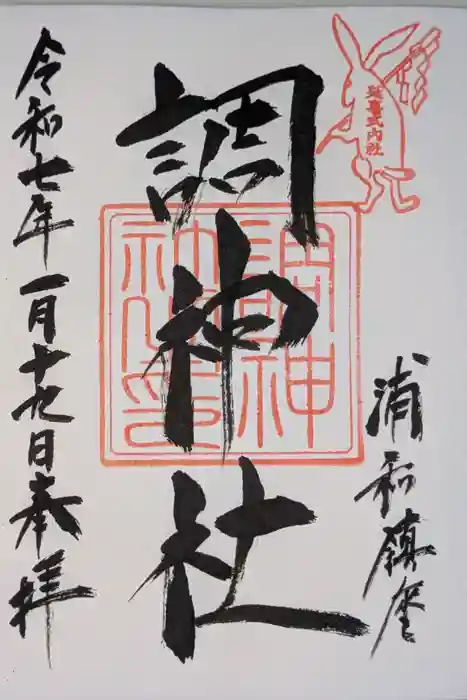 延喜式内社
浦和鎮座
調神社
調神社之印
令和七年一月十九日奉拝